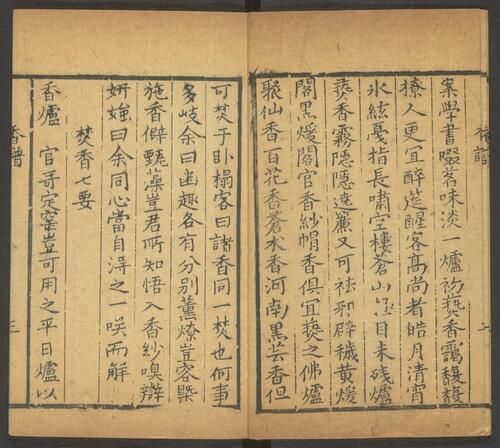 案學書啜茗味淡一爐初爇香靄馥馥
撩人更宜醉筵醒客高尚者皓月清宵
氷絃戞指長嘯空樓蒼山極目未殘爐
爇香霧隱隱遶簾又可祛邪辟穢黄煖
閣黒煖閣官香紗帽香俱宜爇之佛爐
聚仙香百花香蒼术香河南黒芸香但
可焚于卧榻客曰諸香同一焚也何事
多岐余曰幽趣各有分别薰燎豈容槩
施香僻甄藻豈君所知悟入香紗嗅辯
妍媸曰余同心當自得之一咲而解
焚香七要
香爐 官哥定窑豈可用之平日爐以
香譜 三